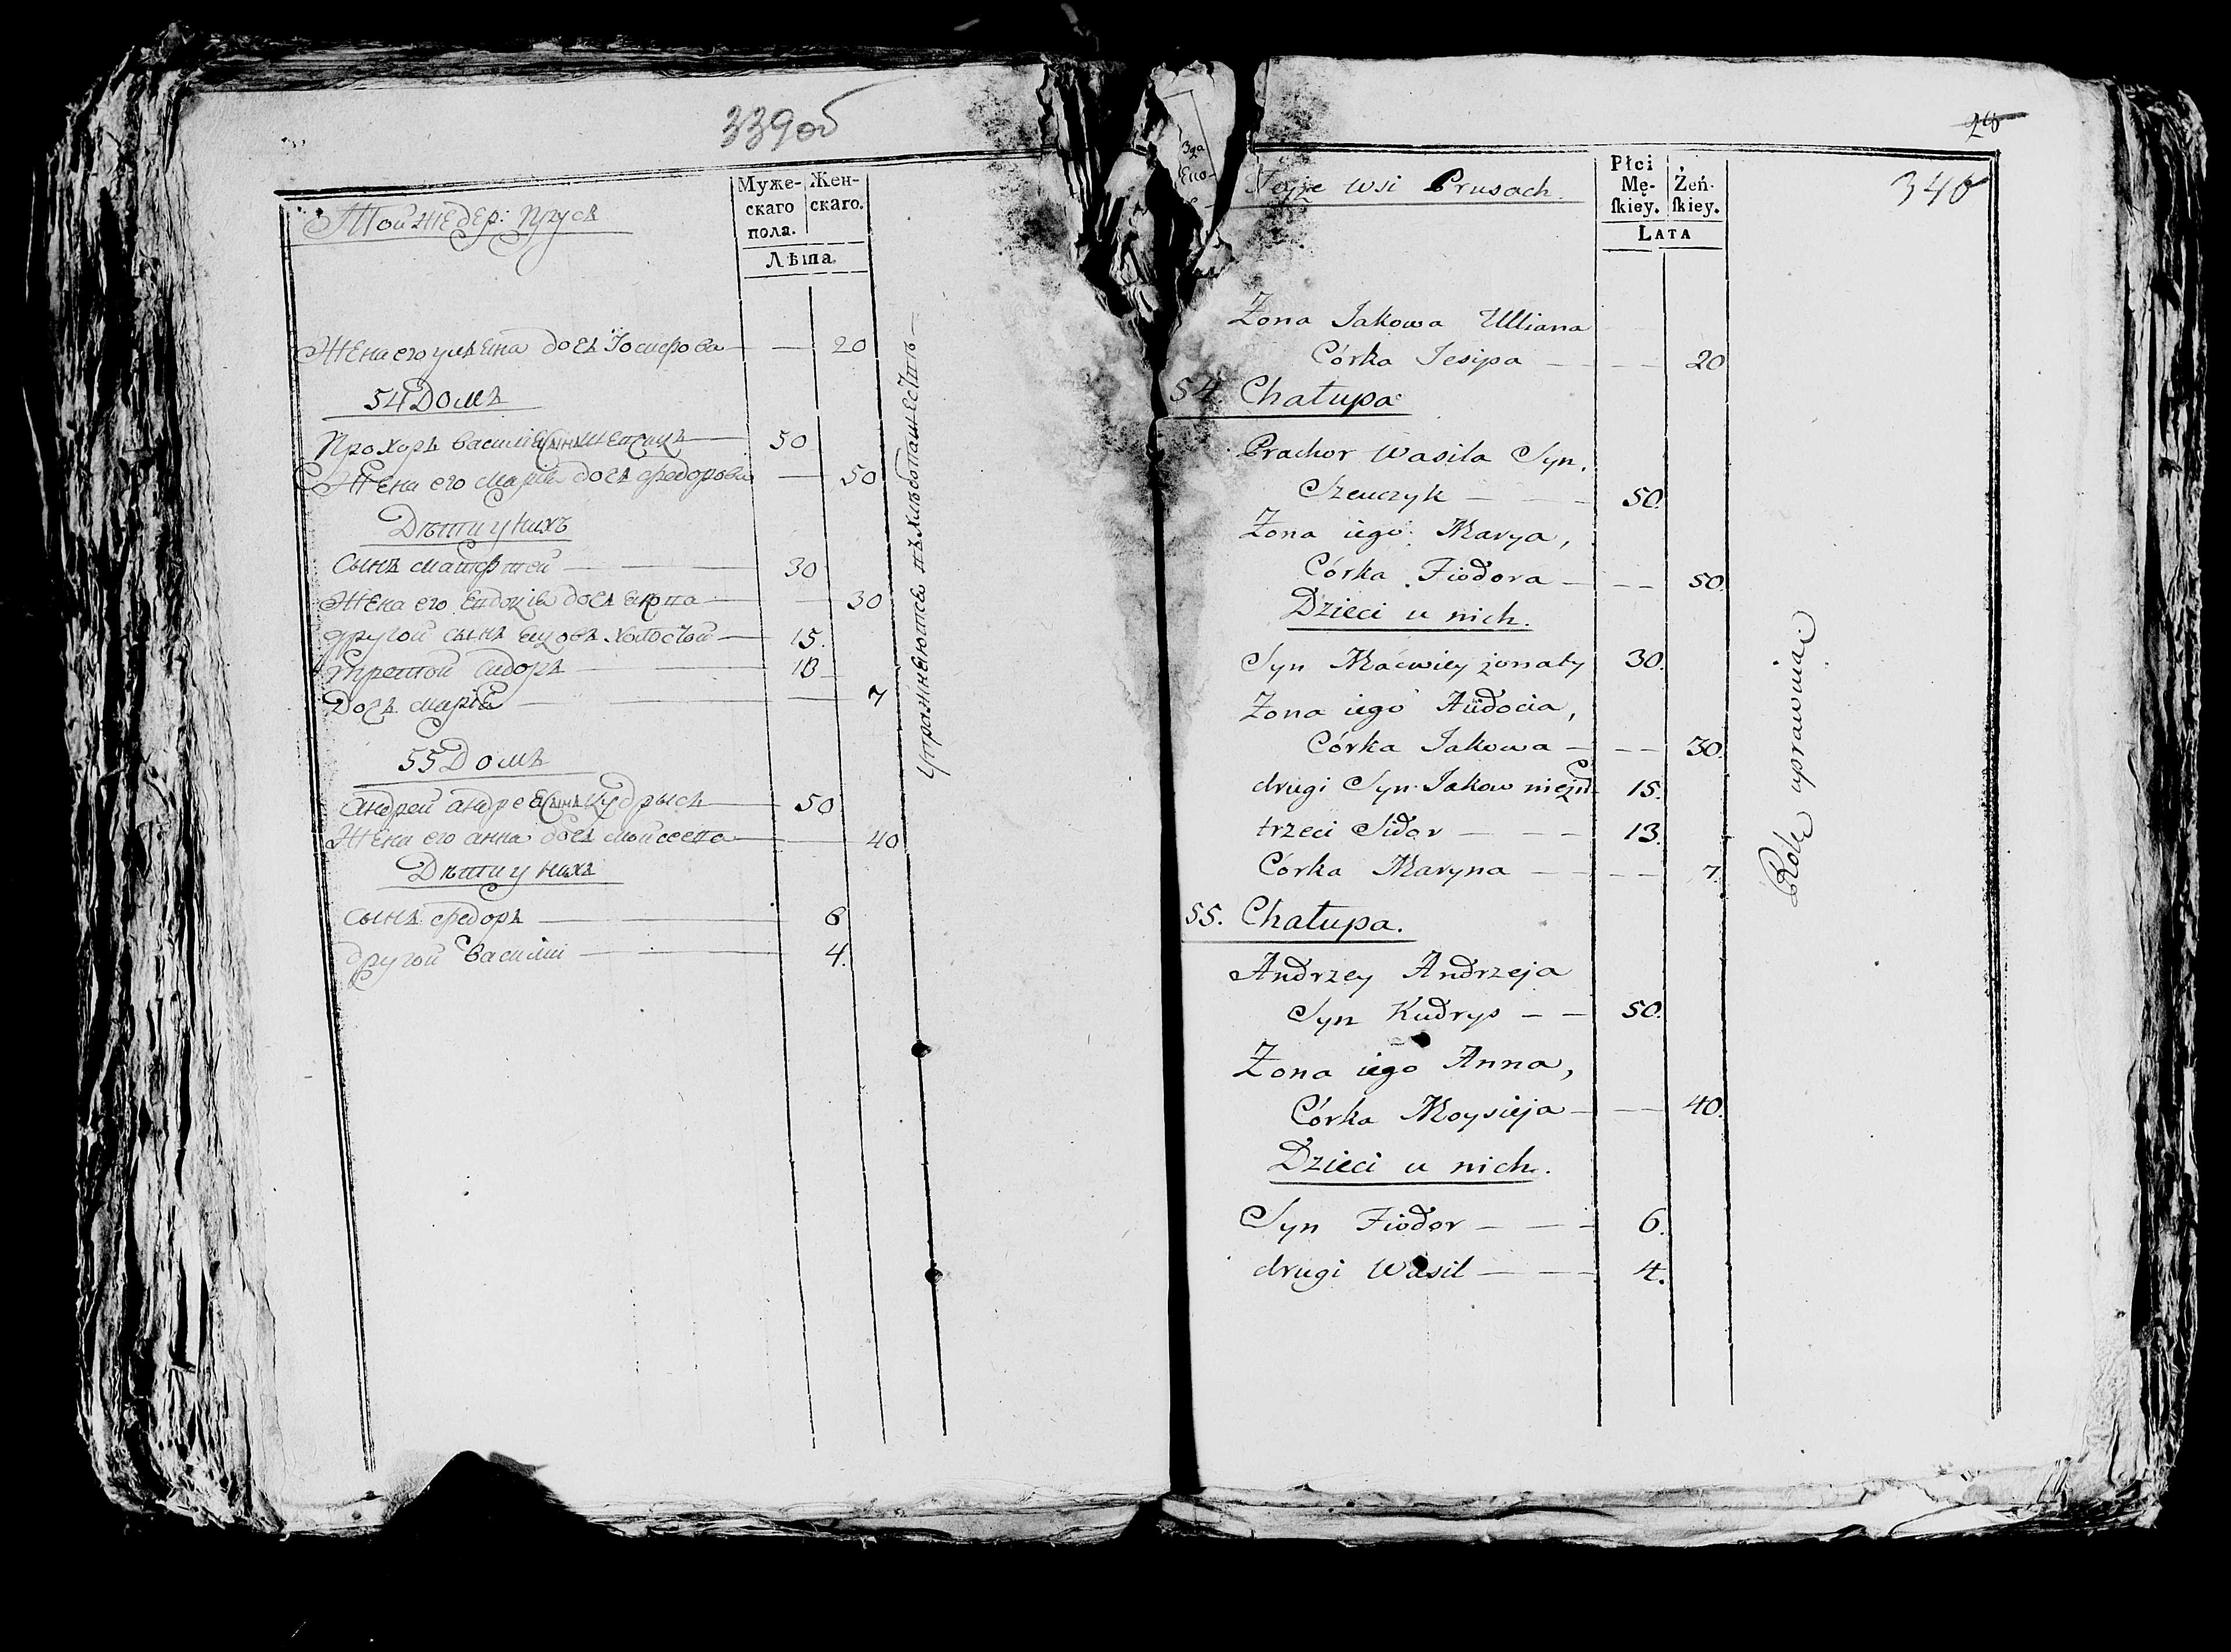 339об
Той же дер: Прусъ
Муже-
скаго
пола.
Жен-
скаго.
Лѣта.
Жена его улѣяна дочь Іосифова — — 20
54 Домъ
Прохоръ василіевъ сынъ шевчикъ — 50
Жена его марья дочь федорова — 50
Дѣти у нихъ
Сынъ матфѣей — — 30
Жена его евдокія дочь якова — 30
другой сынъ яковъ холостой — 15.
третой сидоръ — 13
Дочь марія — — 7
55 Домъ
андрей андреевъ сынъ кудрысь — 50
Жена его анна дочь мойсеева — 40
Дѣти у нихъ
сынъ федоръ — 6
другой василій — 4.
Упражняются въ хлѣбопашествѣ —
28
340
Teyże wsi Prusach.
Płci
Mę-
skiey.
Żeń-
skiey.
LATA
Żona Jakowa Ulliana
Córka Jesipa — — — 20
54. Chałupa
Prachor Wasila Syn,
Szewczyk — — 50.
Żona iego Marya,
Córka Fiodora — — — 50.
Dzieci u nich.
Syn Maćwiey żonaty 30.
Żona iego Audocia,
Córka Jakowa — — — 30.
drugi Syn Jakow nieżo. 15.
trzeci Sidor — — — 13.
Córka Maryna — — — 7.
55. Chałupa.
Andrzey Andrzeja
Syn Kudryś — — 50.
Żona iego Anna,
Córka Moysieja — — 40.
Dzieci u nich.
Syn Fiodor — — — 6.
drugi Wasil — — — 4.
Rolę uprawuiąc